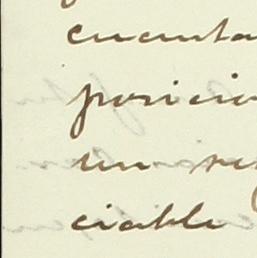 cuenta
posicio
un re
ciable